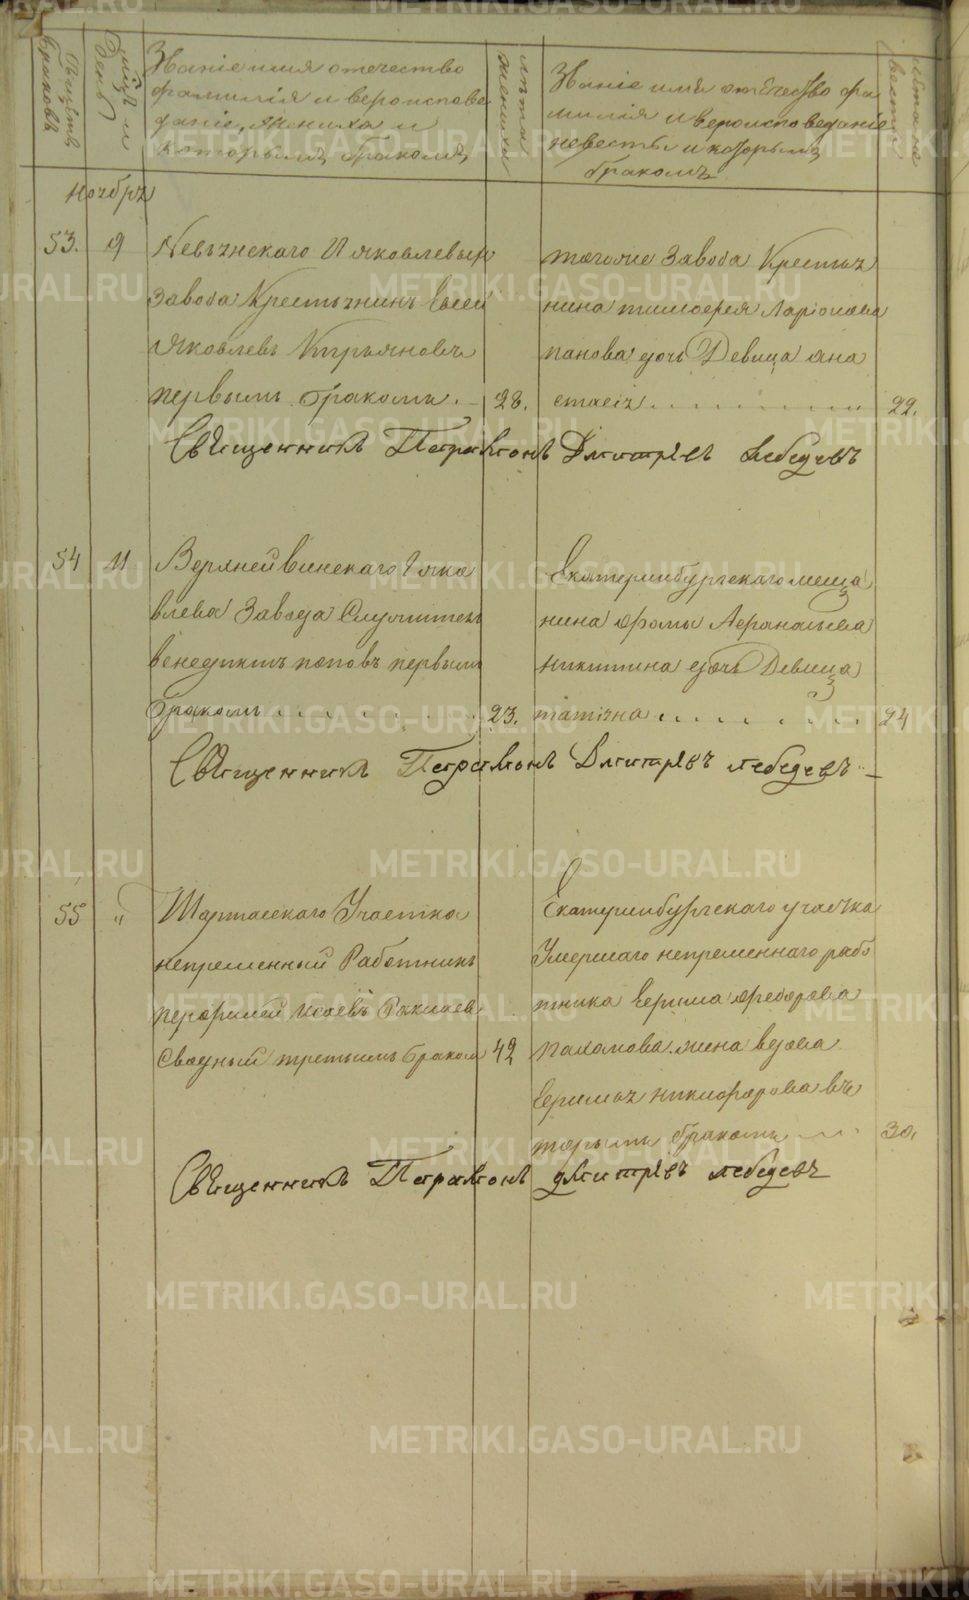 Счетъ браковъ
Мѣсяцъ и День
Званіе имя отечество
фамилія и вероиспове
даніе, жениха и
которымъ бракомъ
лѣта жениха
Званіе имя отечество фа
милія и вероисповеданіе
невесты и которымъ
бракомъ
лѣта невесты
ноябрь
53.
9
Невьянскаго И яковлевыхъ
завода Крестьянинъ Евсей
Яковлевъ
первымъ бракомъ. 28.
тогоже Завода Крестья
нина тимофея Ларіонова
панова дочь Девица ана
стасія 22.
Священникъ Парамонъ Дмитріевъ Лебедевъ
54
11
Верхнейвинскаго Яко
влева Завода Служитель
венедиктъ поповъ первымъ
бракомъ 23.
Екатеринбургскаго меща
нина фомы Афанасьева
никитина дочь Девица
татіяна 24
Священникъ Парамонъ Дмитріевъ лебедевъ
55
"
Шарташскаго Участка
непременный Работникъ
перфилей исаевъ
Сводный третьимъ браком 42
Екатеринбургскаго участка
Умершаго непременнаго рабо
тника Ефима феодорова
паламова жена вдова
Ефимья никифорова въ
торымъ бракомъ 30.
Священникъ Парамонъ дмитріевъ лебедевъ
METRIKI.GASO-URAL.RU